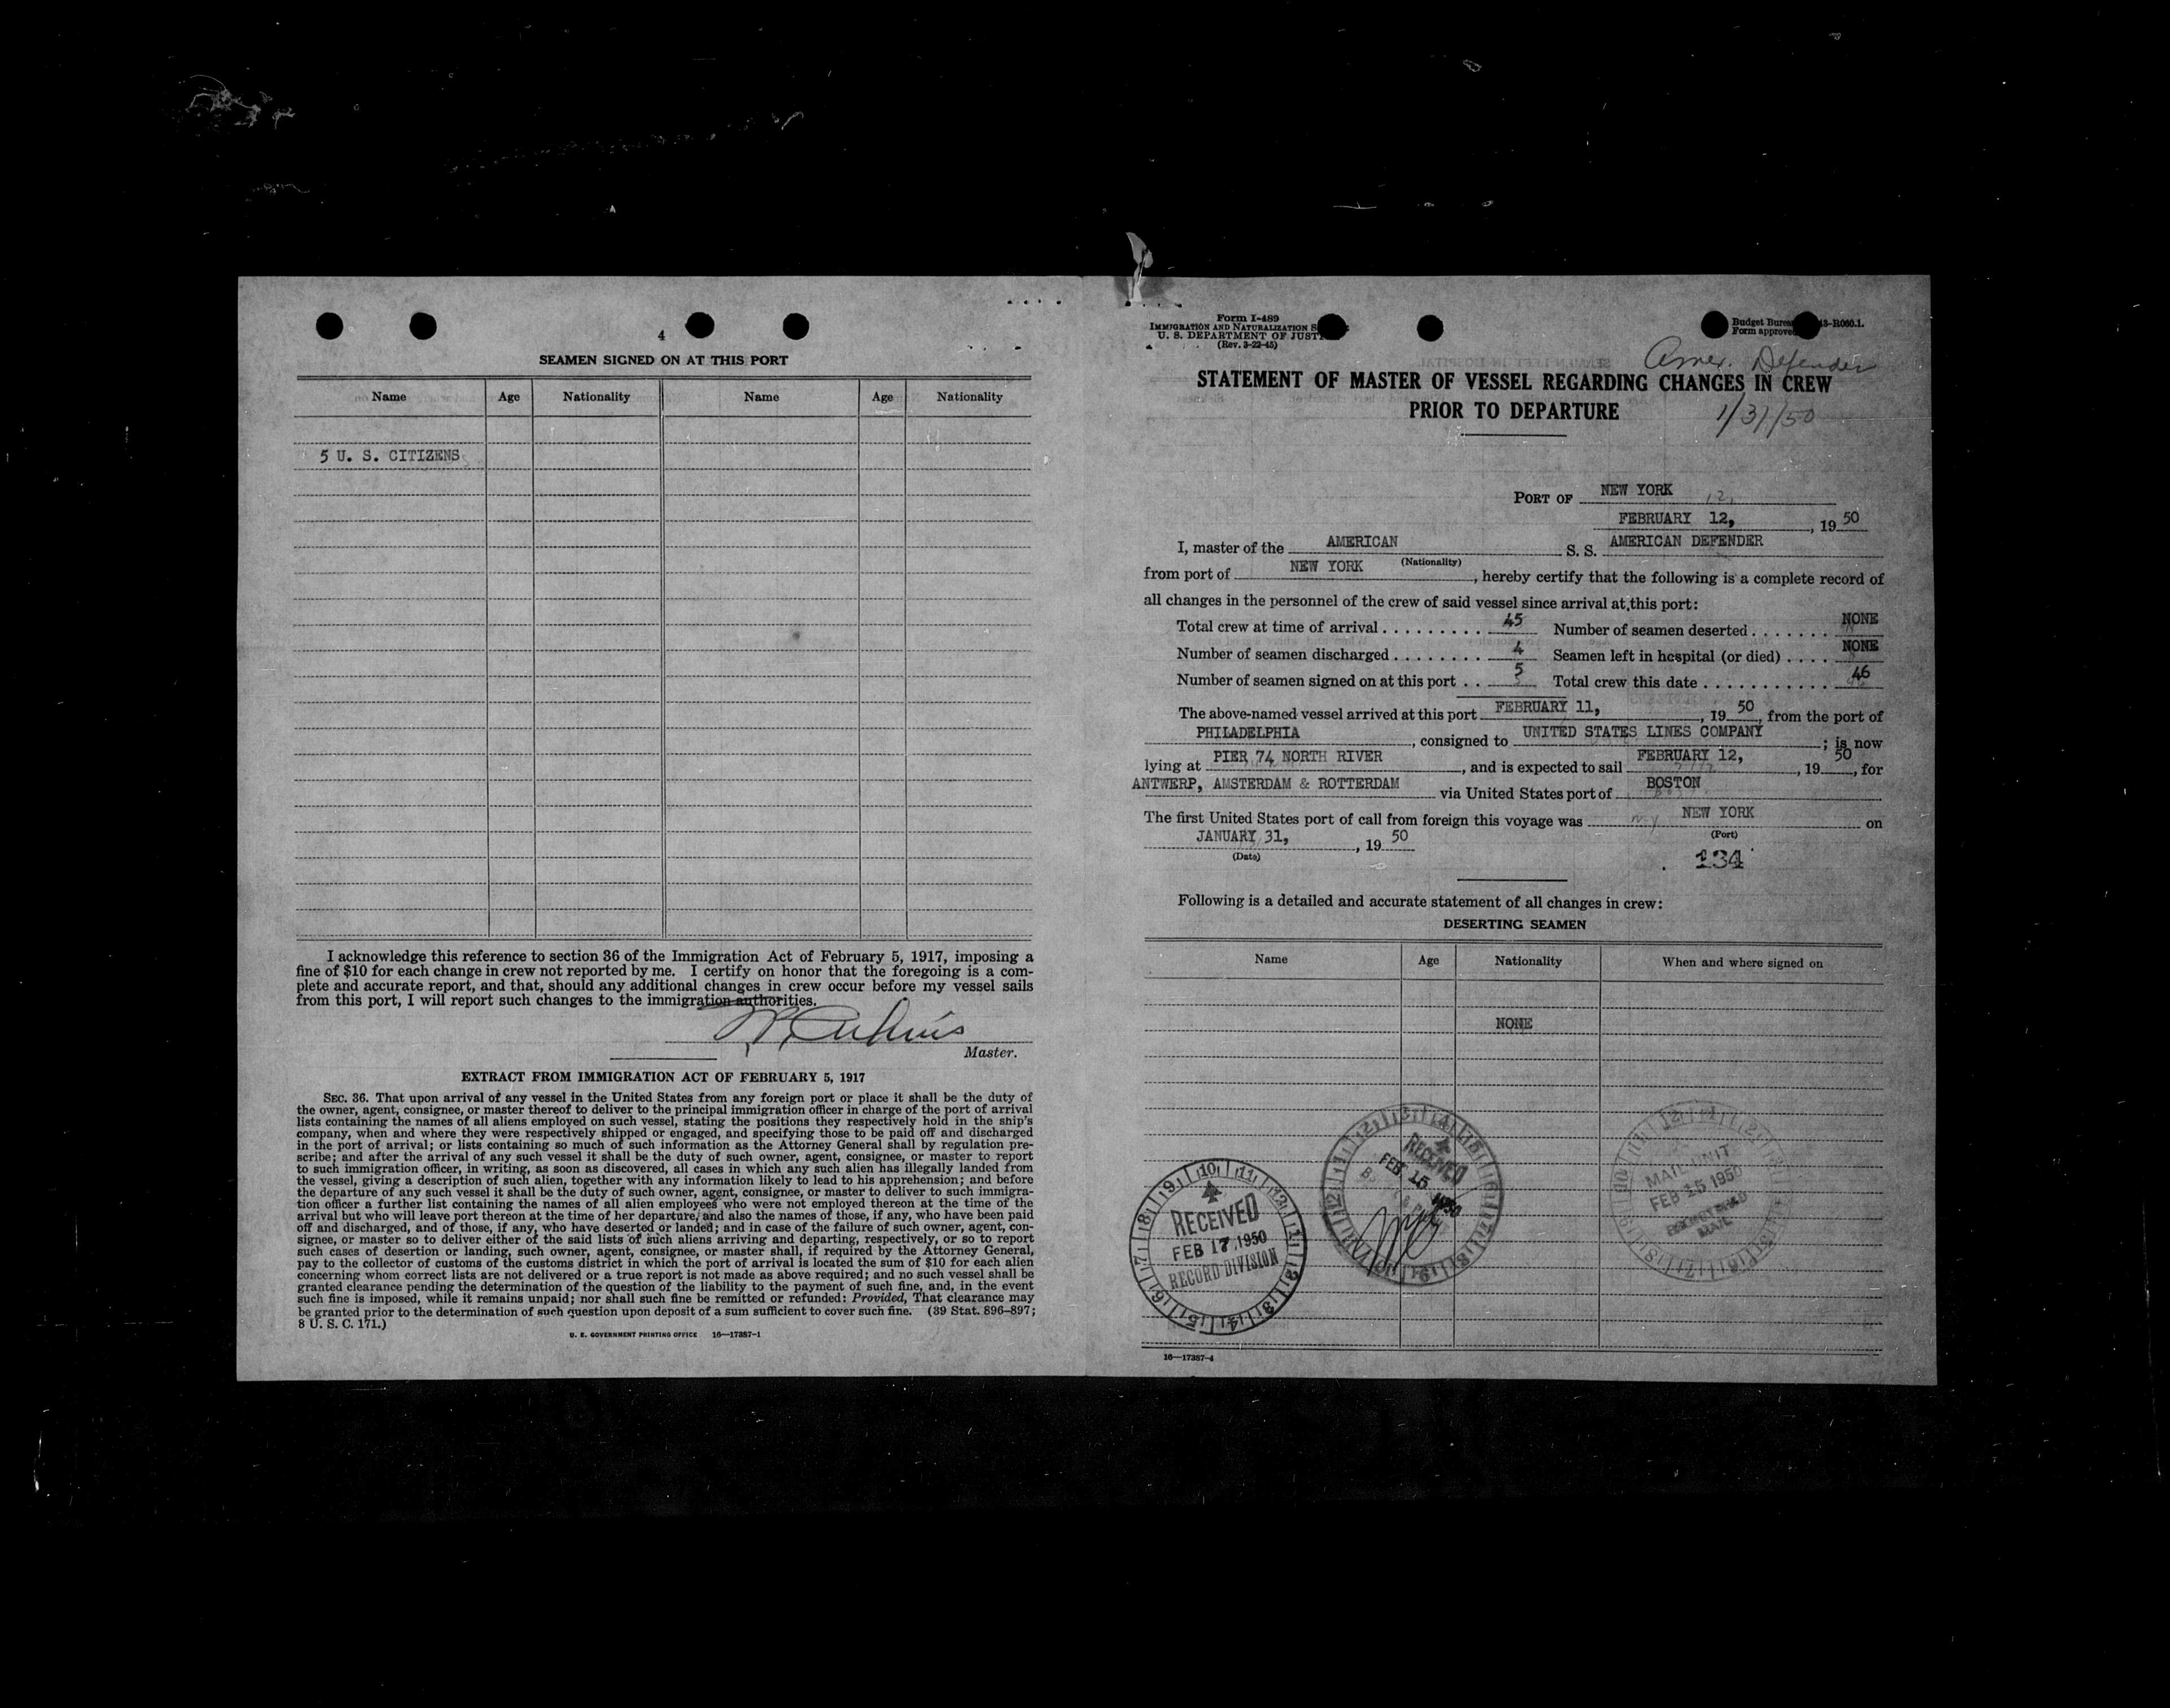 4
SEAMEN SIGNED ON AT THIS PORT
Name Age Nationality Name Age Nationality
5 U. S. CITIZENS
I acknowledge this reference to section 36 of the Immigration Act of February 5, 1917, imposing a
fine of $10 for each change in crew not reported by me. I certify on honor that the foregoing is a com-
plete and accurate report, and that, should any additional changes in crew occur before my vessel sails
from this port, I will report such changes to the immigration authorities.
Master.
EXTRACT FROM IMMIGRATION ACT OF FEBRUARY 5, 1917
SEC. 36. That upon arrival of any vessel in the United States from any foreign port or place it shall be the duty of
the owner, agent, consignee, or master thereof to deliver to the principal immigration officer in charge of the port of arrival
lists containing the names of all aliens employed on such vessel, stating the positions they respectively hold in the ship's
company, when and where they were respectively shipped or engaged, and specifying those to be paid off and discharged
in the port of arrival; or lists containing so much of such information as the Attorney General shall by regulation pre-
scribe; and after the arrival of any such vessel it shall be the duty of such owner, agent, consignee, or master to report
to such immigration officer, in writing, as soon as discovered, all cases in which any such alien has illegally landed from
the vessel, giving a description of such alien, together with any information likely to lead to his apprehension; and before
the departure of any such vessel it shall be the duty of such owner, agent, consignee, or master to deliver to such immigra-
tion officer a further list containing the names of all alien employees who were not employed thereon at the time of the
arrival but who will leave port thereon at the time of her departure, and also the names of those, if any, who have been paid
off and discharged, and of those, if any, who have deserted or landed; and in case of the failure of such owner, agent, con-
signee, or master so to deliver either of the said lists of such aliens arriving and departing, respectively, or so to report
such cases of desertion or landing, such owner, agent, consignee, or master shall, if required by the Attorney General,
pay to the collector of customs of the customs district in which the port of arrival is located the sum of $10 for each alien
concerning whom correct lists are not delivered or a true report is not made as above required; and no such vessel shall be
granted clearance pending the determination of the question of the liability to the payment of such fine, and, in the event
such fine is imposed, while it remains unpaid; nor shall such fine be remitted or refunded: Provided, That clearance may
be granted prior to the determination of such question upon deposit of a sum sufficient to cover such fine. (39 Stat. 896-897;
8 U. S. C. 171.)
U. S. GOVERNMENT PRINTING OFFICE 16—17387-1
Form I-489
IMMIGRATION AND NATURALIZATION S
U. S. DEPARTMENT OF JUST
(Rev. 3-22-45)
Budget Burea 43-R060.1.
Form approve
Amer. Defender
STATEMENT OF MASTER OF VESSEL REGARDING CHANGES IN CREW
PRIOR TO DEPARTURE
1/31/50
PORT OF NEW YORK
FEBRUARY 12, , 19 50
I, master of the AMERICAN S. S. AMERICAN DEFENDER
(Nationality)
from port of NEW YORK , hereby certify that the following is a complete record of
all changes in the personnel of the crew of said vessel since arrival at this port:
Total crew at time of arrival . . . . . . . . . 45 Number of seamen deserted . . . . . . . NONE
Number of seamen discharged . . . . . . . . 4 Seamen left in hospital (or died) . . . . NONE
Number of seamen signed on at this port . . 5 Total crew this date . . . . . . . . . . . 46
The above-named vessel arrived at this port FEBRUARY 11, , 19 50 , from the port of
PHILADELPHIA , consigned to UNITED STATES LINES COMPANY ; is now
lying at PIER 74 NORTH RIVER , and is expected to sail FEBRUARY 12, , 19 50 , for
ANTWERP, AMSTERDAM & ROTTERDAM via United States port of BOSTON
The first United States port of call from foreign this voyage was NEW YORK on
(Port)
JANUARY 31, , 19 50
(Date)
134
Following is a detailed and accurate statement of all changes in crew:
DESERTING SEAMEN
Name Age Nationality When and where signed on
NONE
RECEIVED
FEB 17 1950
RECORD DIVISION
RECEIVED
FEB 15 1950
MAIL UNIT
FEB 15 1950
REGISTERED
MAIL
16—17387-4